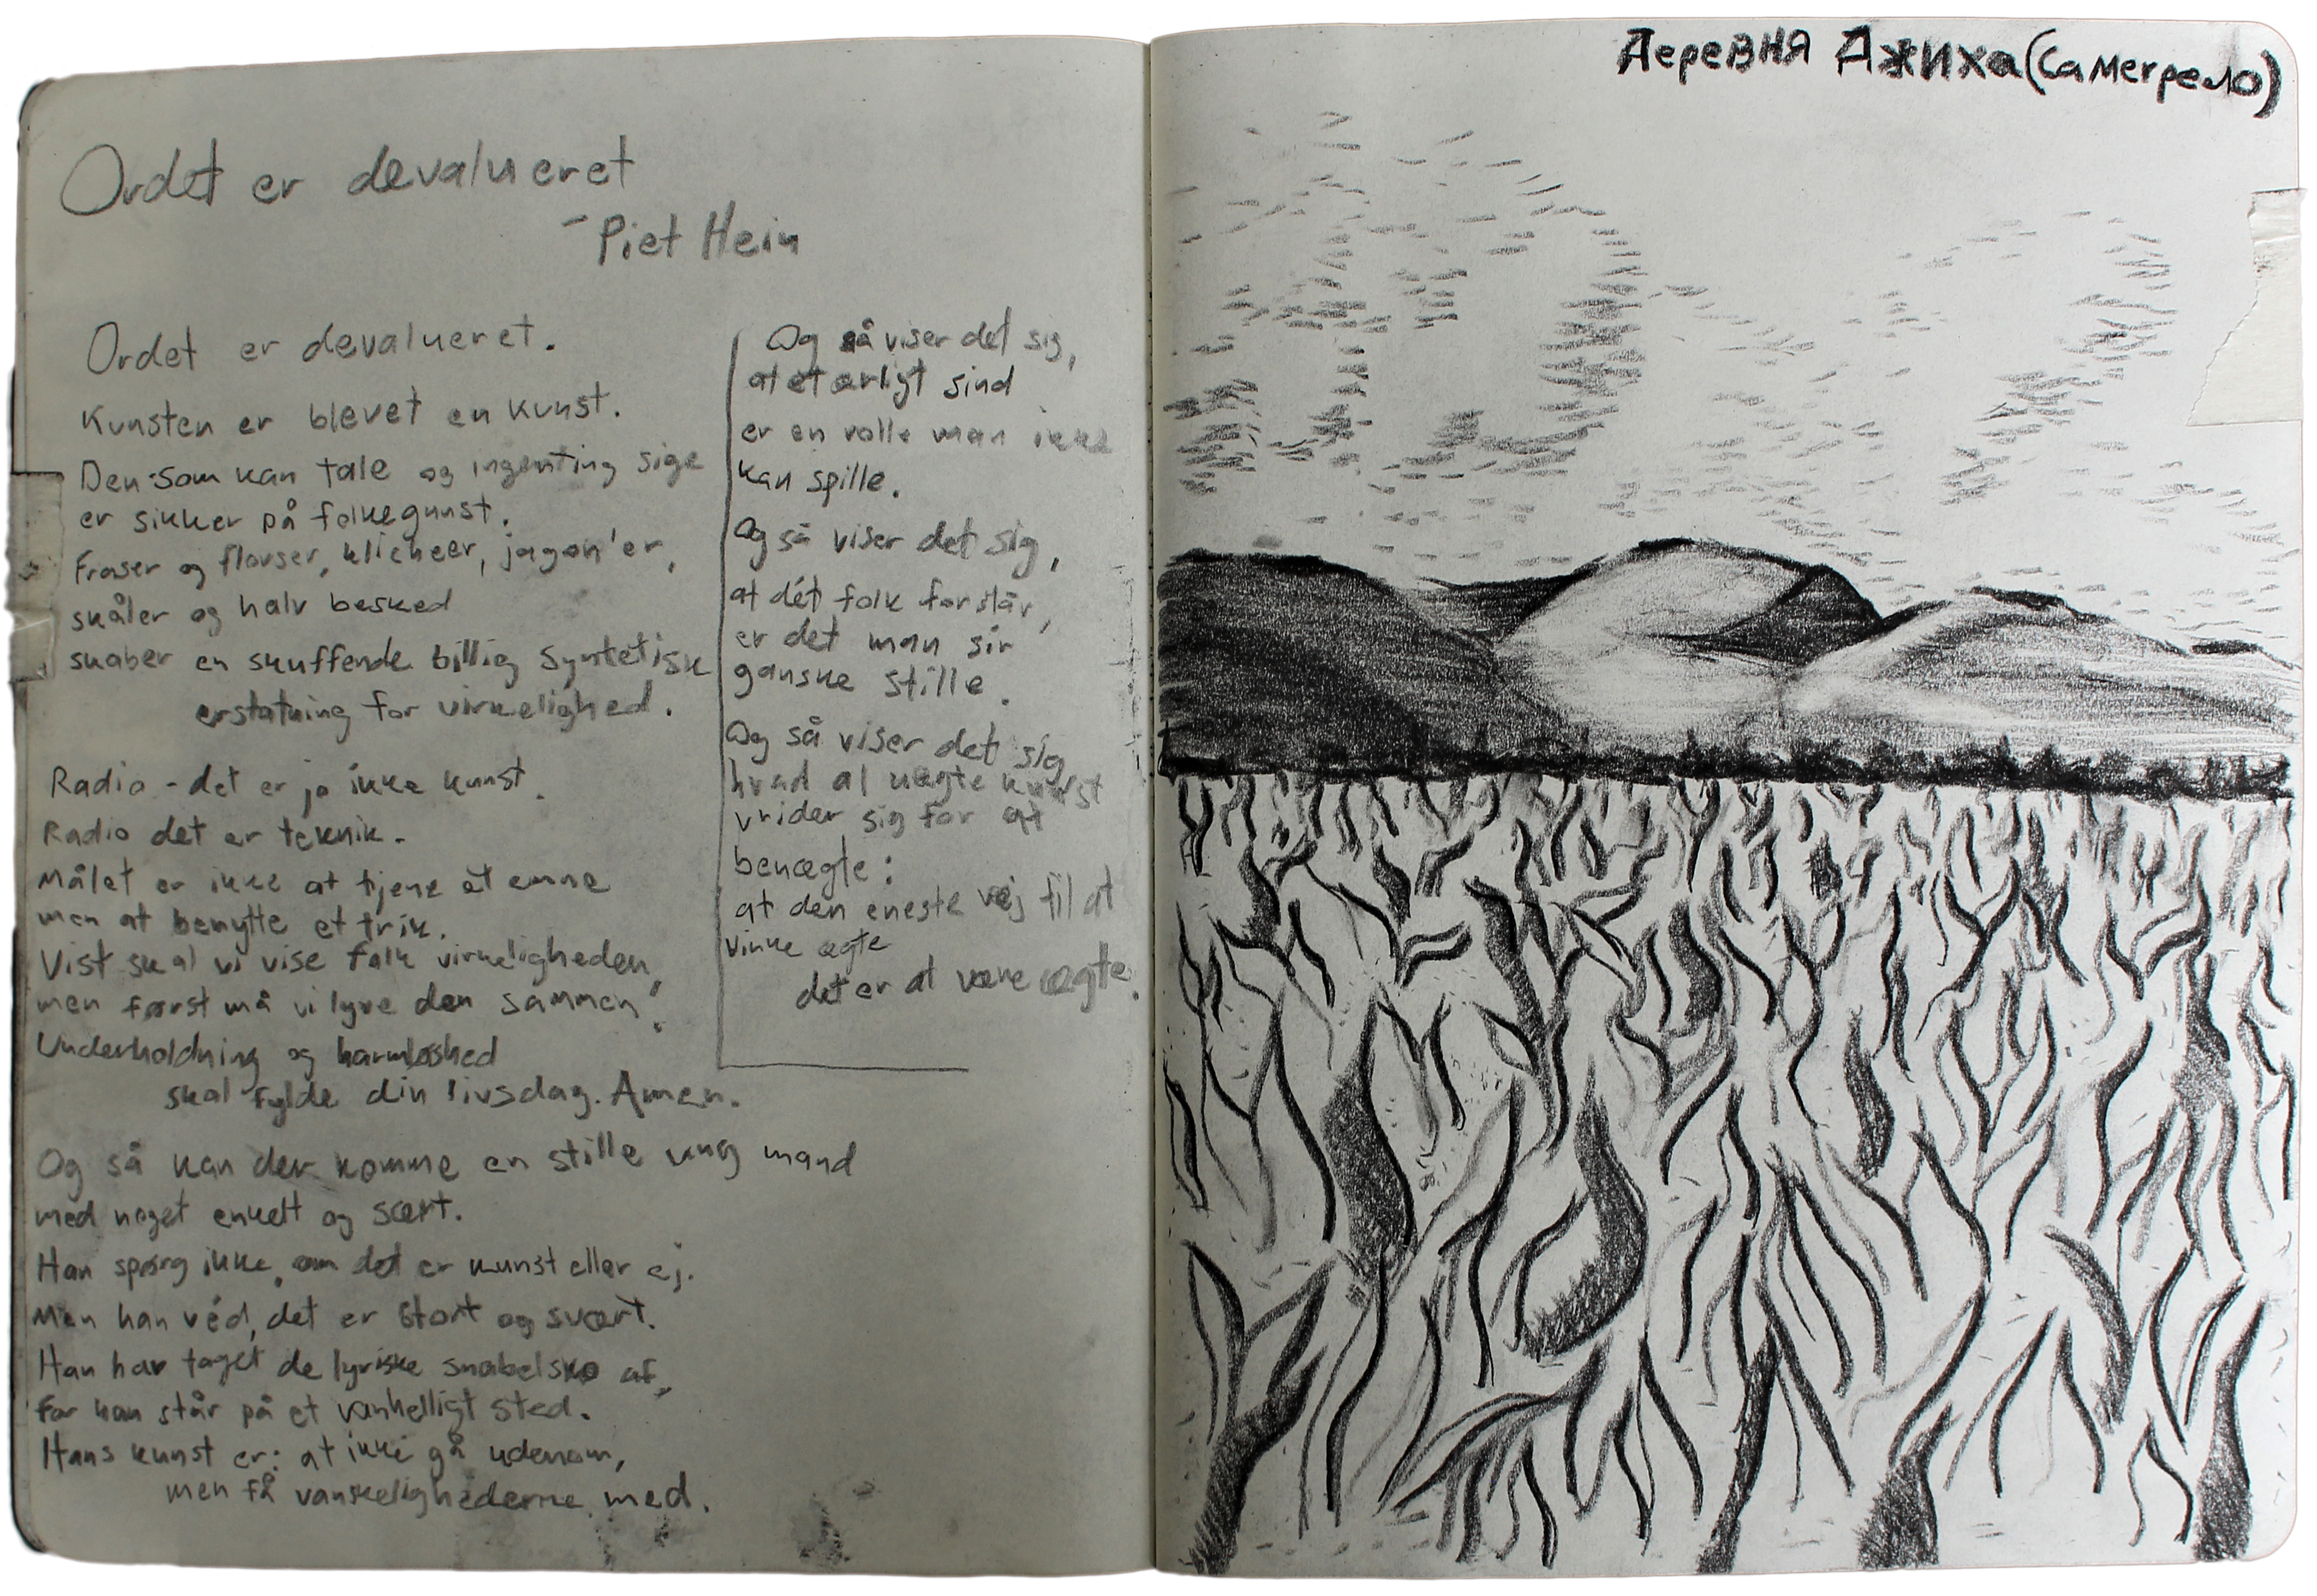 Ordet er devalueret
- Piet Hein
Ordet er devalueret.
Kunsten er blevet en kunst.
Den som kan tale og ingenting sige
er sikker på folkegunst.
Fraser og flovser, klicheer, jagon'er,
skåler og halv besked
skaber en skuffende billig syntetisk
erstatning for virkelighed.
Radio - det er jo ikke kunst.
Radio det er teknik.
Målet er ikke at tjene et emne
men at benytte et trik.
Vist skal vi vise folk virkeligheden,
men først må vi lyve den sammen!
Underholdning og harmløshed
skal fylde din livsdag. Amen.
Og så kan der komme en stille ung mand
med noget enkelt og sært.
Han spørg ikke, om det er kunst eller ej.
Men han véd, det er stort og svært.
Han har taget de lyriske snabelsko af,
for han står på et vanhelligt sted.
Hans kunst er: at ikke gå udenom,
men få vanskelighederne med.
Og så viser det sig,
at et ærligt sind
er en rolle man ikke
kan spille.
Og så viser det sig,
at dét folk forstår,
er det man sir
ganske stille.
Og så viser det sig
hvad al uægte kunst
vrider sig for at
benægte:
at den eneste vej til at
virke ægte
det er at være ægte.
Деревня Джиха (Самегрело)